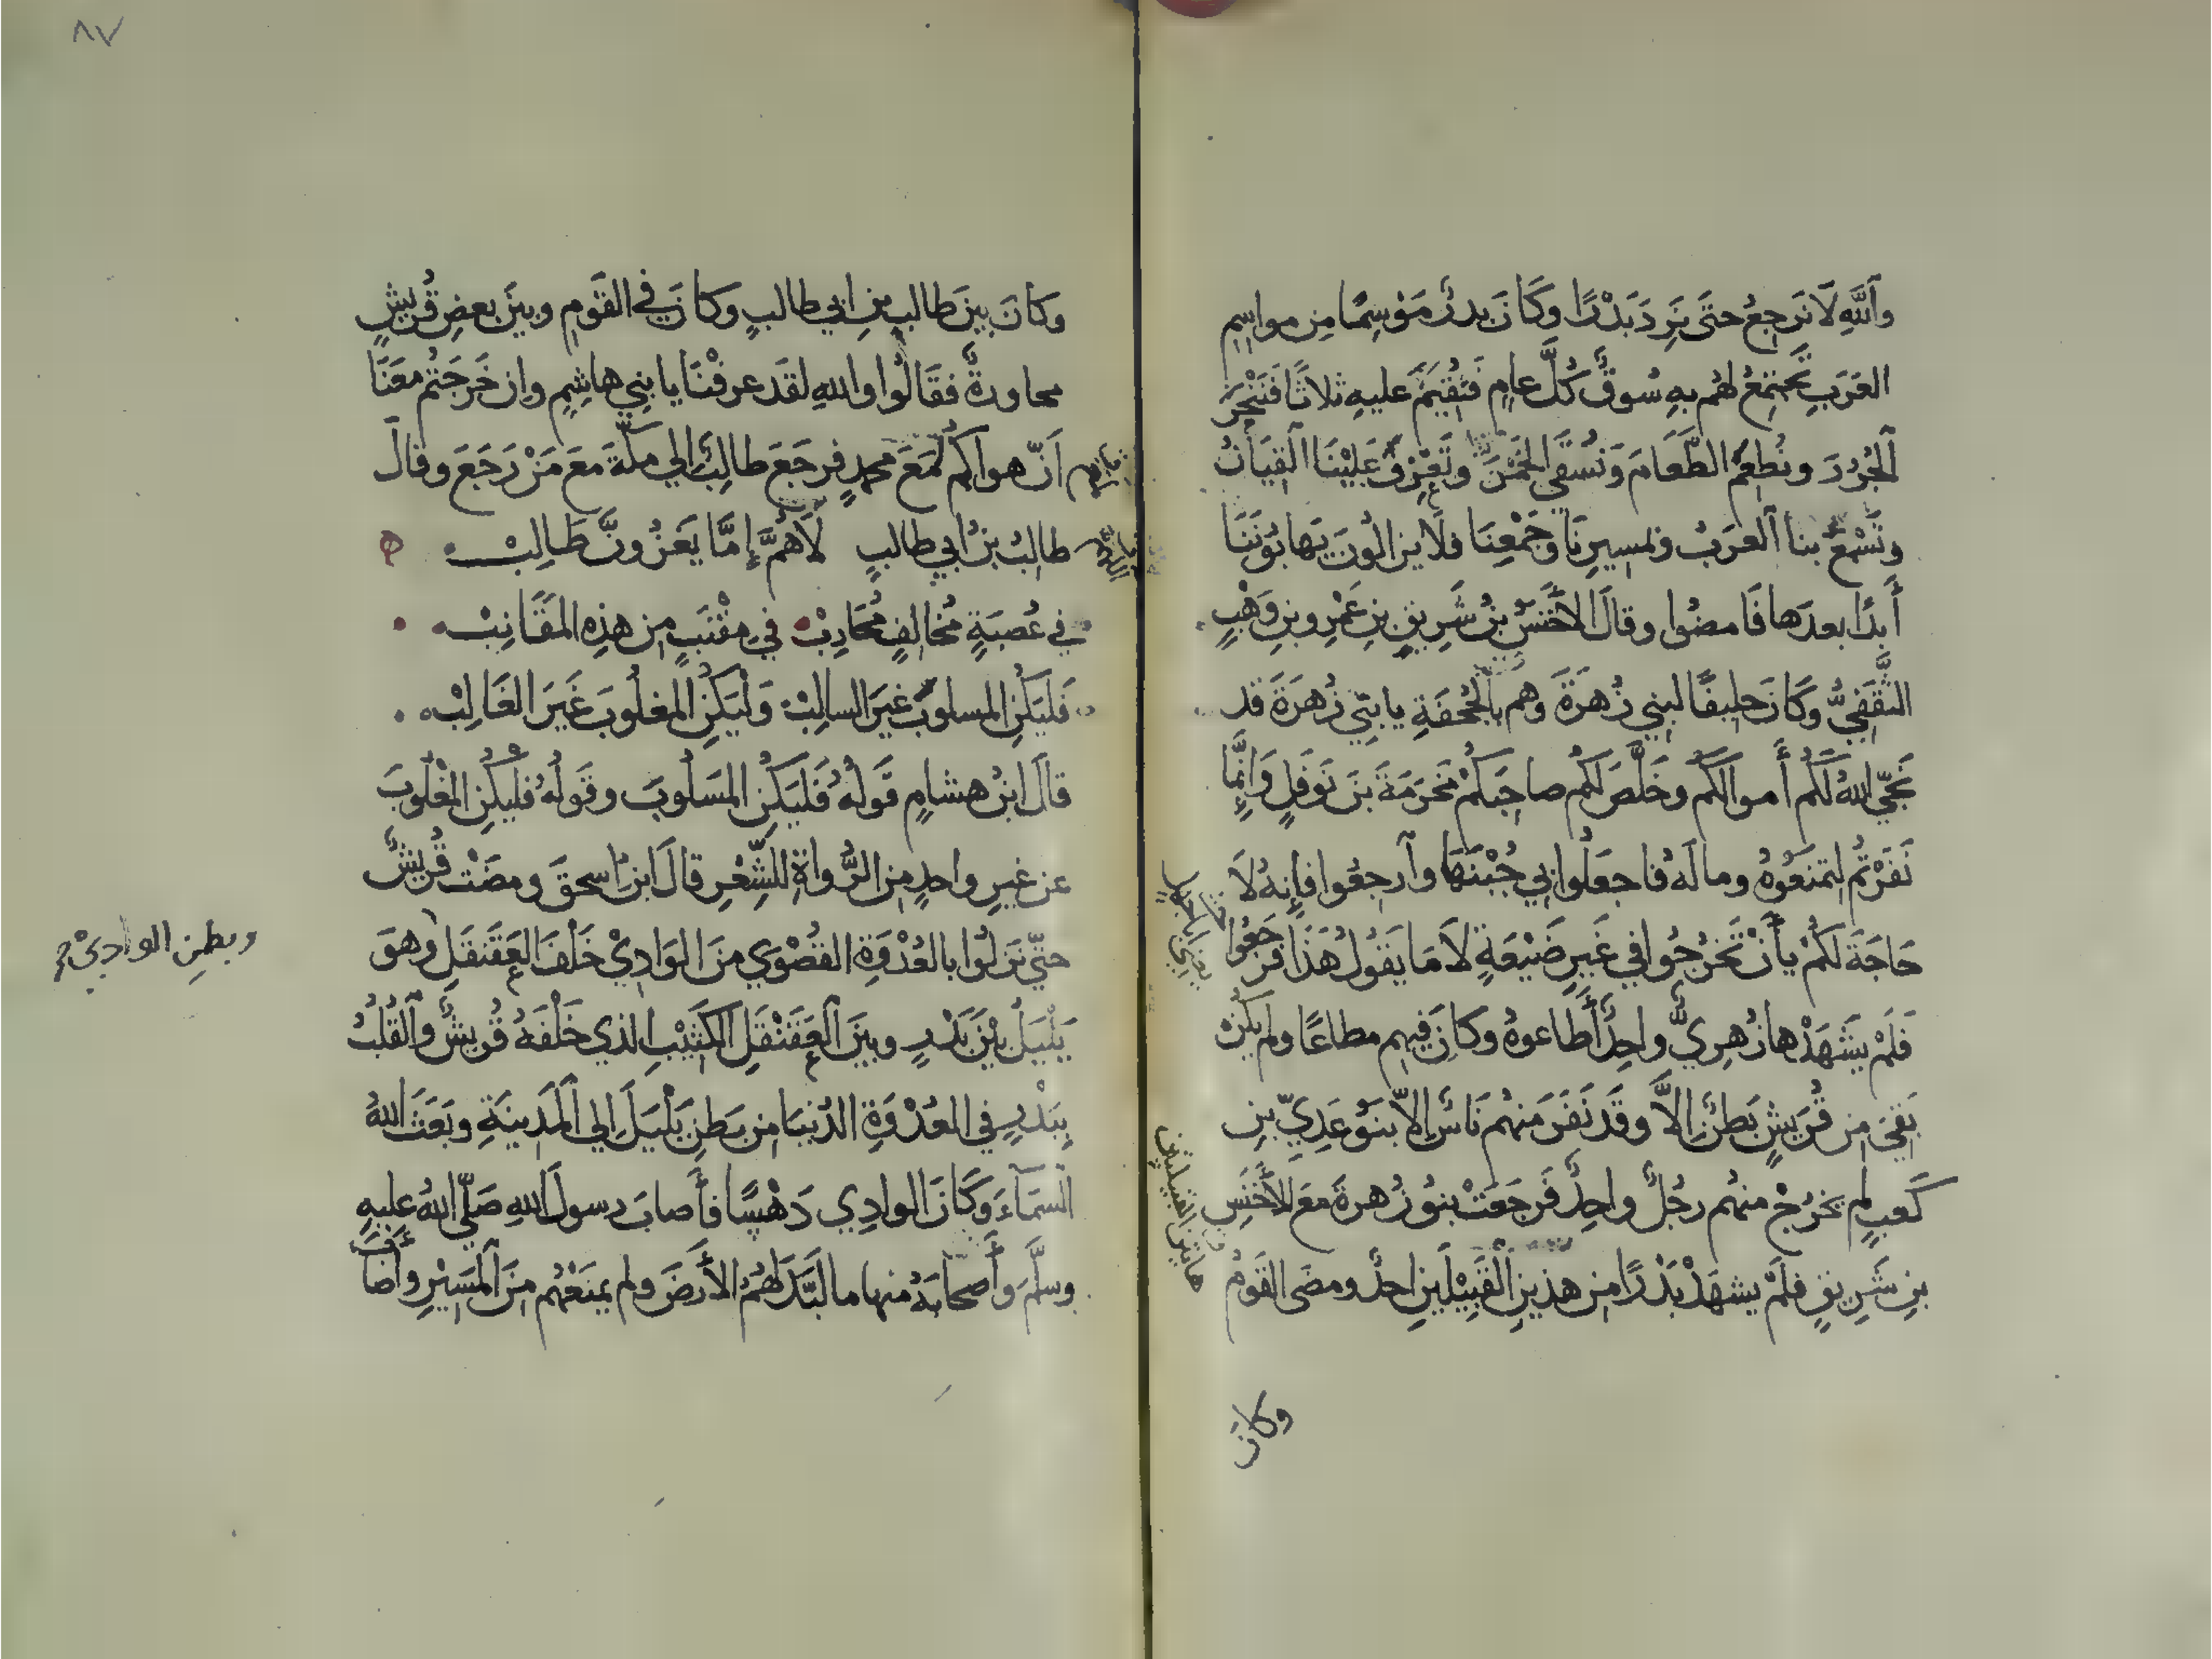 وَاللَّهِ لَا نَرجِعُ حتَى نَرِدَ بَدْرًا وَكَانَ بدرٌ مَوْسِمًا مِن مواسِمِ
العَرَبِ تَجتمِعُ لهُم بهِ سُوقٌ كُلَّ عامٍ فَنُقِيمُ عليهِ ثلاثًا فَنَنْحَرُ
الجُزُرَ ونُطعِمُ الطَّعَامَ وَنُسْقَي الخَمْرَ وتَعْزِفُ عَلَيْنَا القِيَانُ
وتَسْمَعُ بنا العَرَبُ وبمسيرِنَا وجَمْعِنَا فلا يزالُونَ يَهابُونَنَا
أَبدًا بعدَها فَامضُوا وقالَ الأَخْنَسُ بنُ شَرِيقِ بنِ عَمْرِو بنِ وَهْبٍ
الثَّقَفِيُّ وَكَانَ حليفًا لبنِي زُهرَةَ وَهم بالجُحْفَةِ يا بَنِي زُهرَةَ قد
نَجّي اللهُ لَكُم أَموالَكُم وخَلَّصَ لَكُم صاحِبَكُمْ مَخرَمَةَ بنَ نَوفَلٍ وَإِنَّمَا
نَفَرْتُم لِتمنَعُوهُ ومالَهُ فاجعَلُوا بِي جُبْنَهَا وآرجِعُوا فإنهُ لَا
حَاجَةَ لَكُمْ بأَنْ تَخرُجُوا في غَيرِ ضَيْعَةٍ لَا مَا يَقُولُ هَذَا فرَجَعُوا
فَلَمْ يَشْهَدْها زُهرِيٌّ واحِدٌ أَطَاعوهُ وكانَ فيهِم مطاعًا ولم يَكُنْ
بَقيَ مِن قُرَيشٍ بَطنٌ إِلَّا وقَد نَفَرَ منهُم نَاسٌ إِلّا بَنُو عَدِيِّ بنِ
كَعبٍ لم يَخرُجْ منهُم رجُلٌ واحِدٌ فَرجَعَتْ بنُو زُهرةَ معَ الأَخنَسِ
بنِ شَرِيقٍ فلَمْ يشهَدْ بَدْرًا مِن هذينِ القَبِيْلَينِ احدٌ ومضَى القَومُ
هاتين القبيلتين
وكانَ
٨٧
وكانَ بينَ طالبِ بنِ ابي طالبٍ وكانَ في القَومِ وبينَ بعضِ قُريشٍ
محاورةٌ فقَالُوا واللهِ لقَد عرفْنَا يا بنِي هاشِمٍ وإن خَرَجتُم معَنَا
أَنّ هواكُم لَمَعَ محمدٍ فرجَعَ طالِبٌ إلي مكّةَ معَ مَنْ رَجَعَ وقالَ
طالبُ بنُ ابي طالبٍ لَاهُمَّ إِمَّا يَغزُونَّ طَالِبْ
في عُصبَةٍ مُخالِفٍ مُحَارِبْ في مِقْنَبٍ مِن هذِهِ المَقَانِبْ
فَليَكُنِ المسلوبُ غيَر السالِبْ وَليَكُنِ المغلُوبَ غَيَر الغَالِبْ
قالَ ابنُ هشامٍ قَولُهُ فَليَكُنِ المَسلُوبَ وقَولُهُ فليَكُنِ المغْلُوبَ
عن غيرِ واحدٍ مِنَ الرُّواةِ للشِّعْرِ قالَ ابنُ اسحقَ ومضَتْ قُريشٌ
حتّي نَزلُوا بالعُدْوَةِ القُصْوَي منَ الوَادِيْ خَلْفَ العَقَنقَلِ وهوَ
وبطنِ الواديْ
يَلْيَلُ بيْنَ بَدْرٍ وبينَ العَقَنْقَلِ الكَثِيْبِ الذي خَلْفَهُ قُريشٌ والقُلُبُ
بِبَدْرٍ في العُدْوَةِ الدُنيَا مِن بَطنِ يَلْيَلَ إلي المَدِينَةِ وبَعَثَ اللهُ
السَمَآءَ وَكَانَ الوادِي دَهْسًا فأَصابَ رسولَ اللهِ صَلّي اللهُ عليهِ
وسلَّمَ وأَصحابَهُ منها ما لَبَّدَ لَهُمُ الأَرضَ ولم يمنَعْهُم مِنَ المَسِيْرِ وأَصَابَ